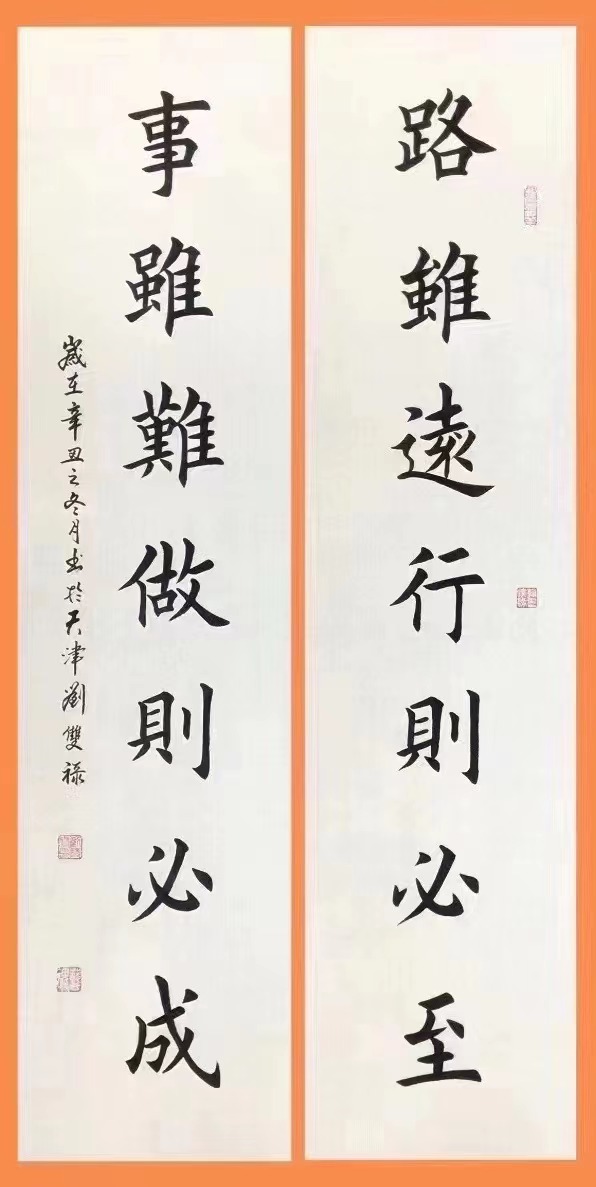 路雖遠行則必至
事雖難做則必成
歲在辛丑之冬月书於天津劉雙禄